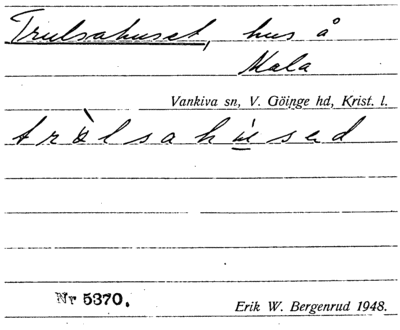 Trulsahuset, hus å
Mala
Vankiva sn, V. Göinge hd, Krist. l.
tròlsahùsed
Nr 5370.
Erik W. Bergenrud 1948.